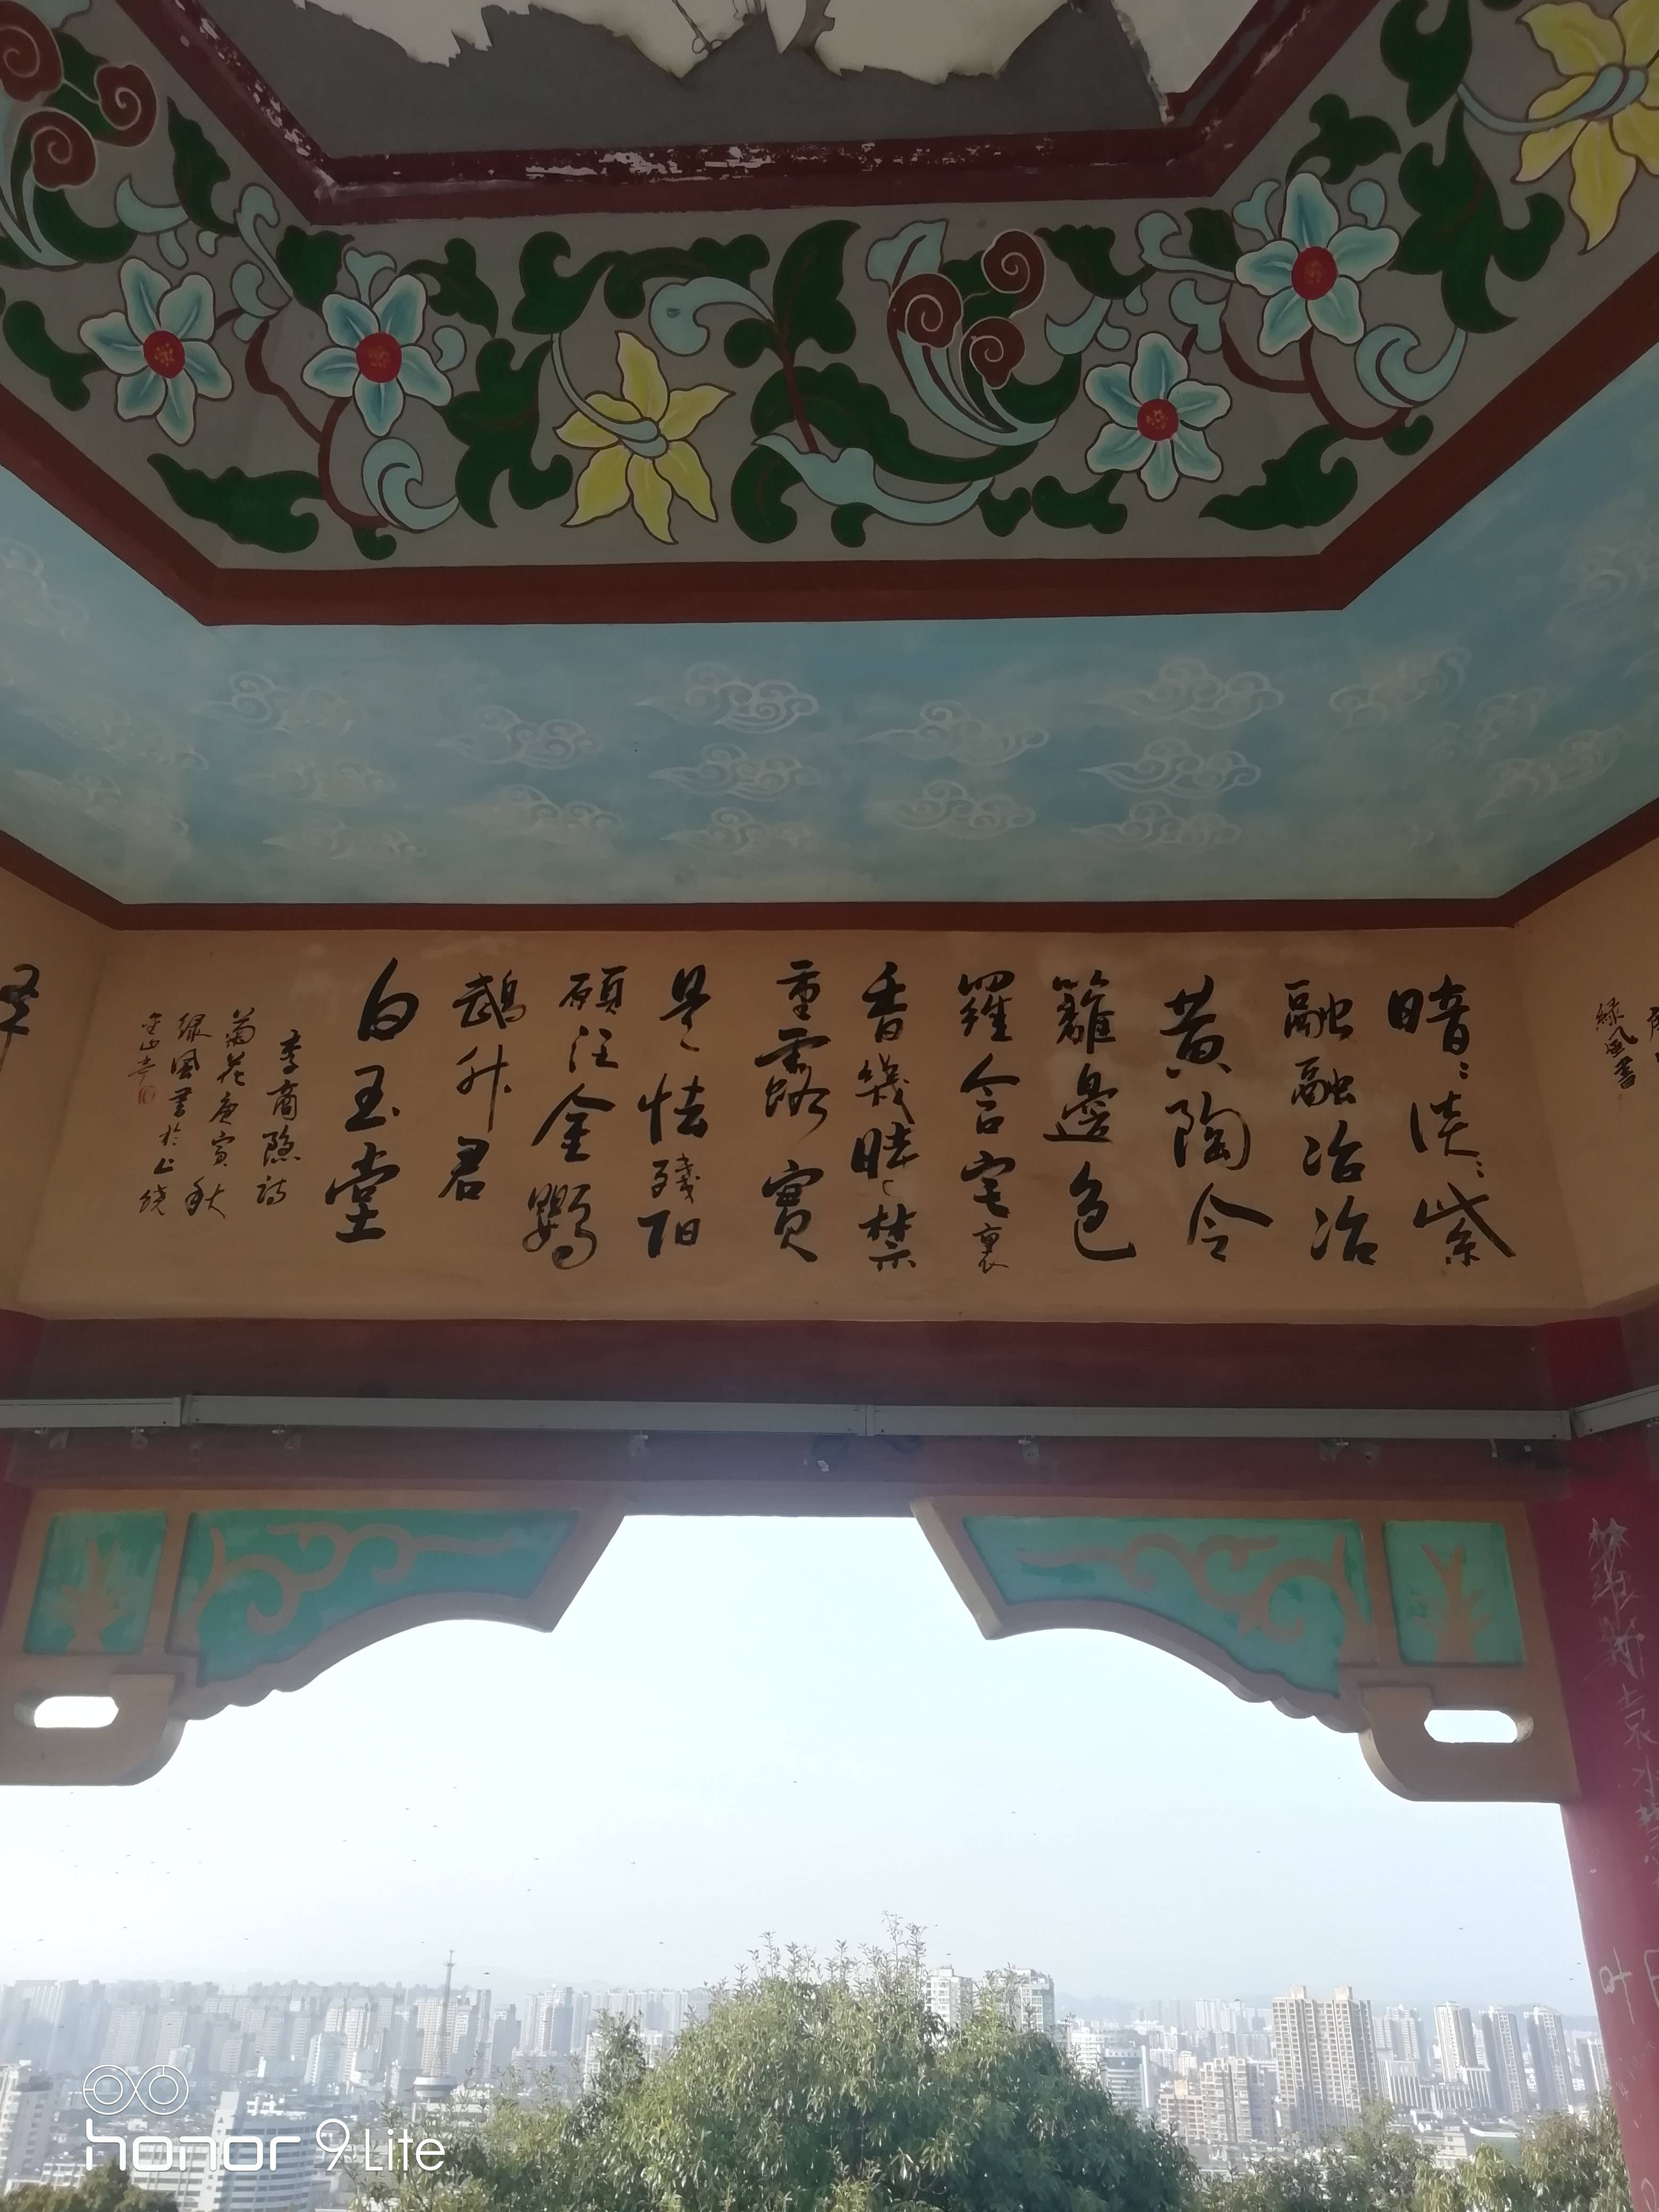 暗〻淡〻紫
融融冶冶
黄陶令
籬邊色
羅含宅裏
香幾時禁
重露實
是怯殘阳
願泛金鸚
鵡升君
白玉堂
李商隐詩
菊花庚寅秋
绿風書於上饒
金山亭
緑風書
honor 9 Lite